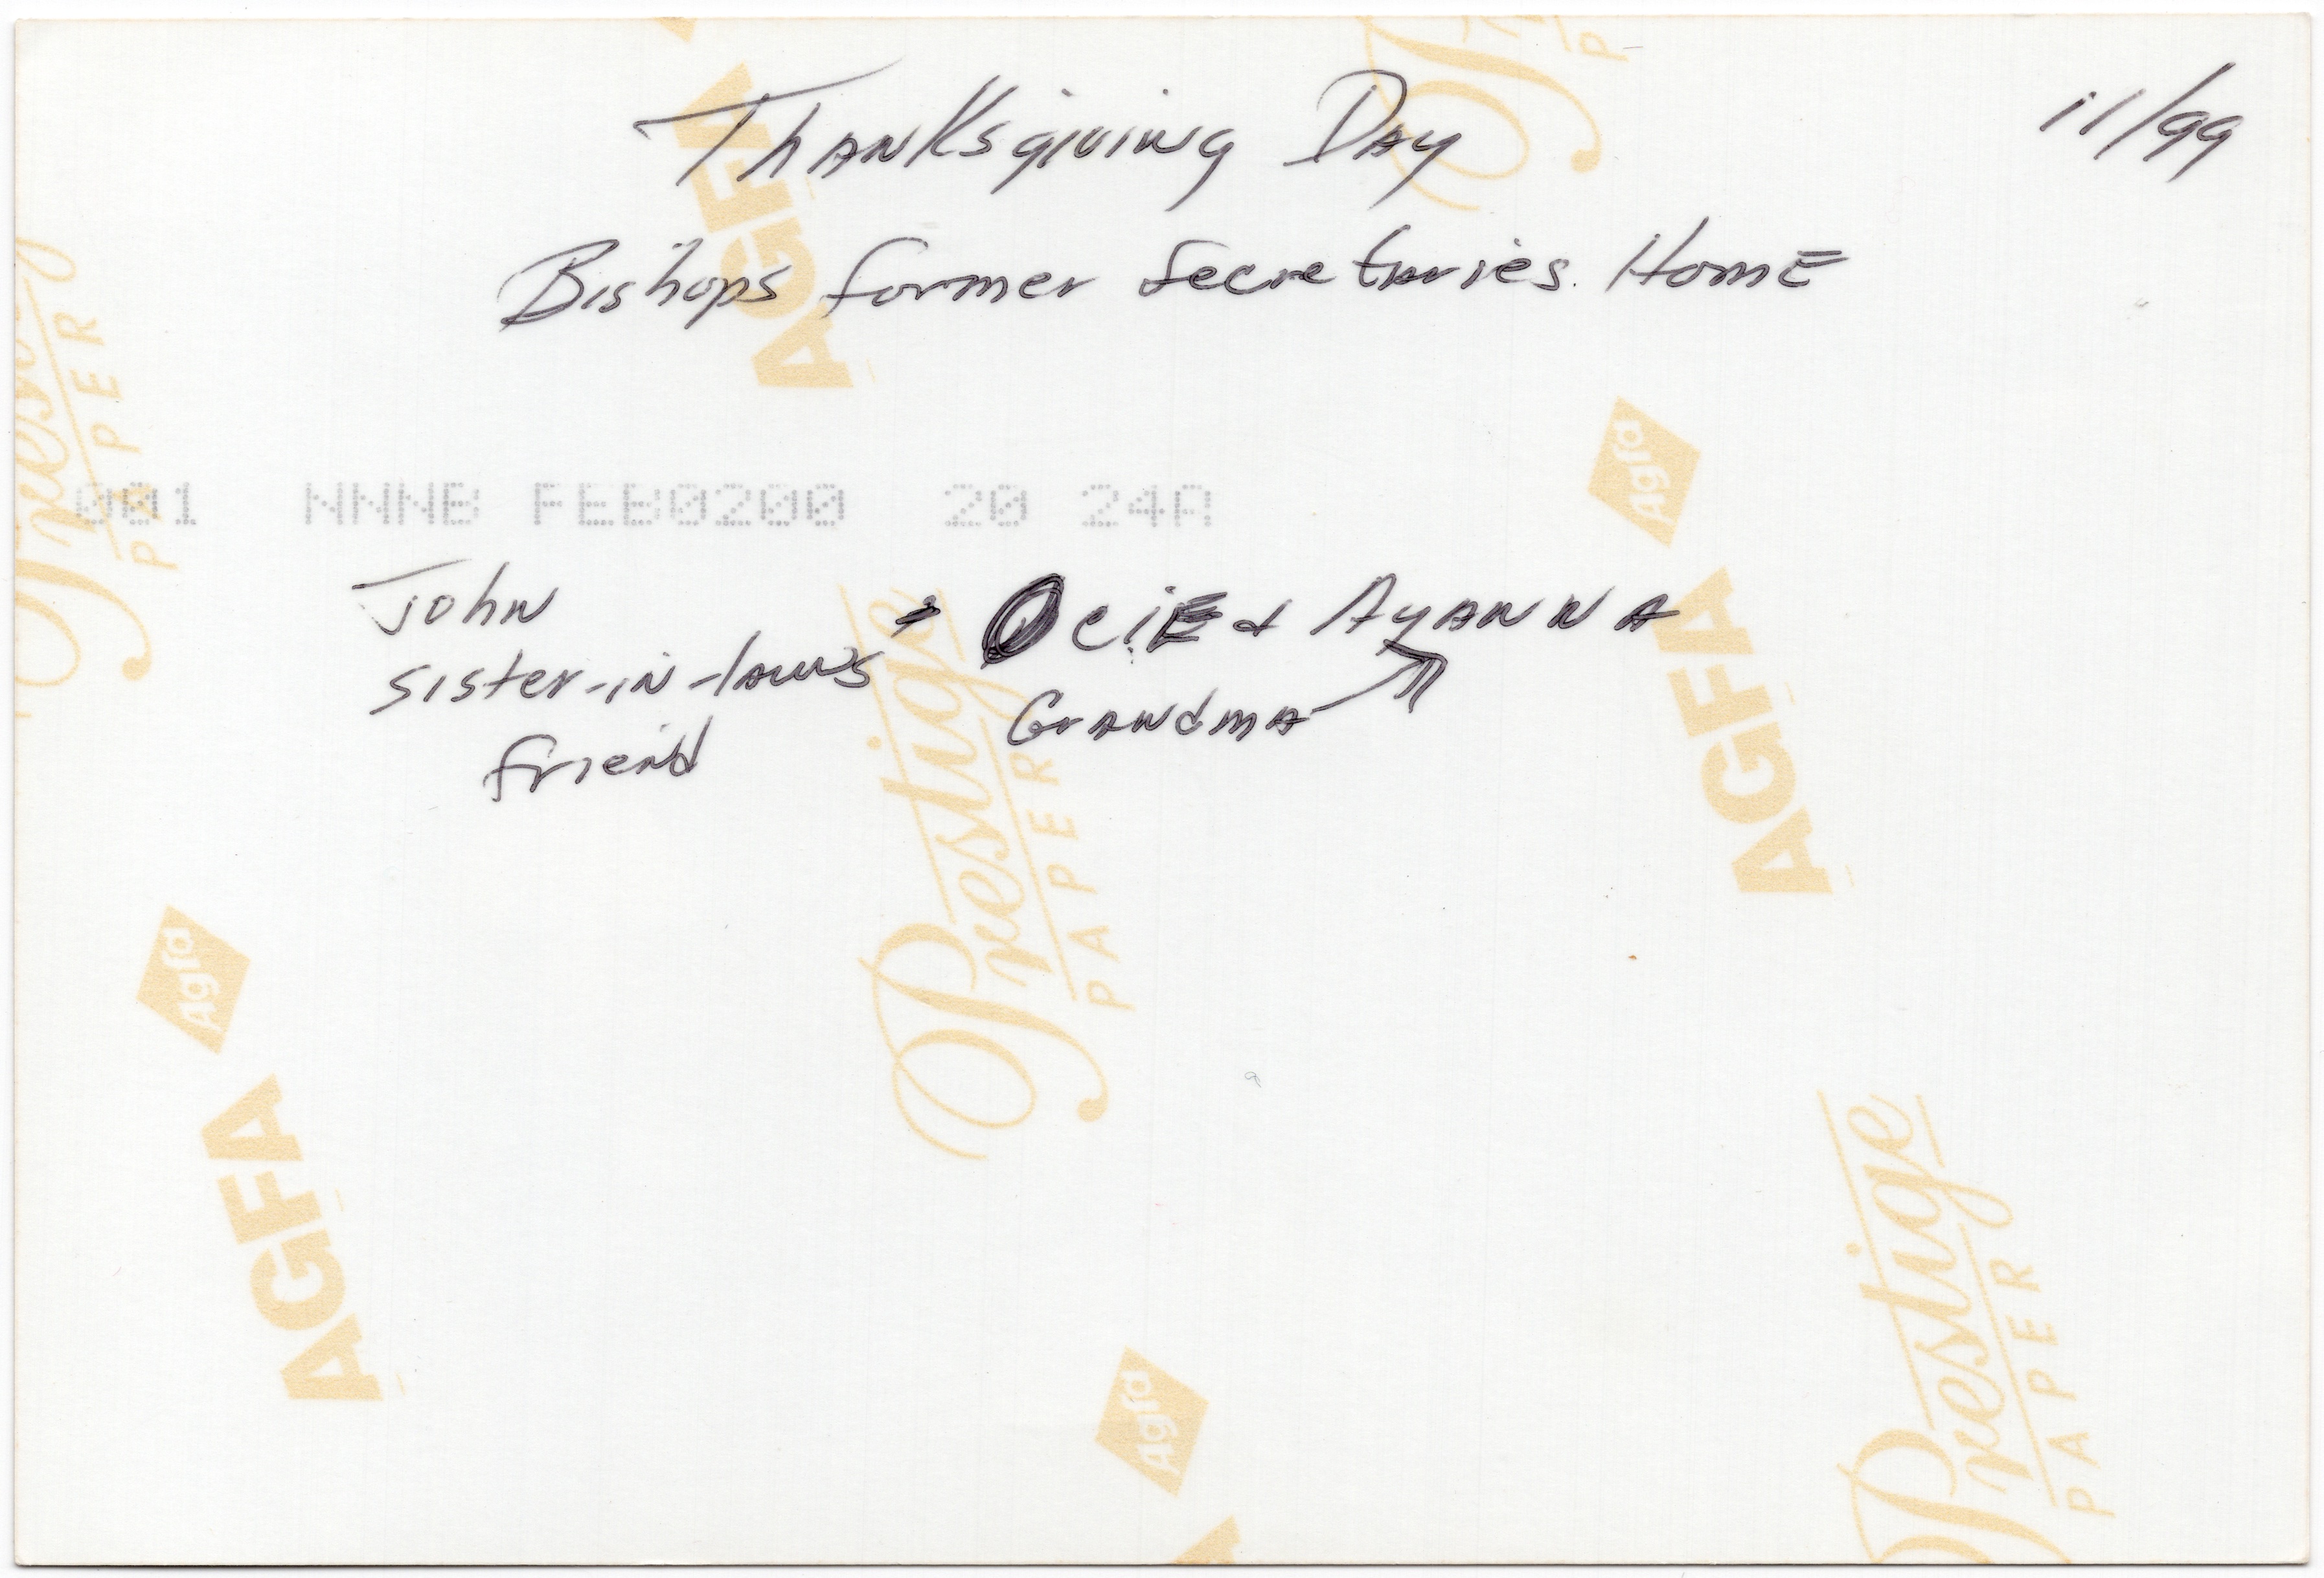 Thanksgiving Day
11/99
Bishops former secretaries Home
001 NNNB FEB0200 20 24A
John
sister-in-laws
friend
OCIE & AyANNA
Grandma
AGFA
Agfa
AGFA
Agfa
AGFA
Agfa
Prestige
PAPER
Prestige
PAPER
Prestige
PAPER